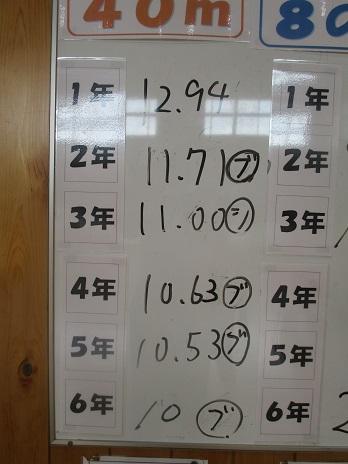 40m 80
1年 12.94 1年
2年 11.71 ブ 2年
3年 11.00 シ 3年
4年 10.63 ブ 4年
5年 10.53 ブ 5年
6年 10 ブ 6年